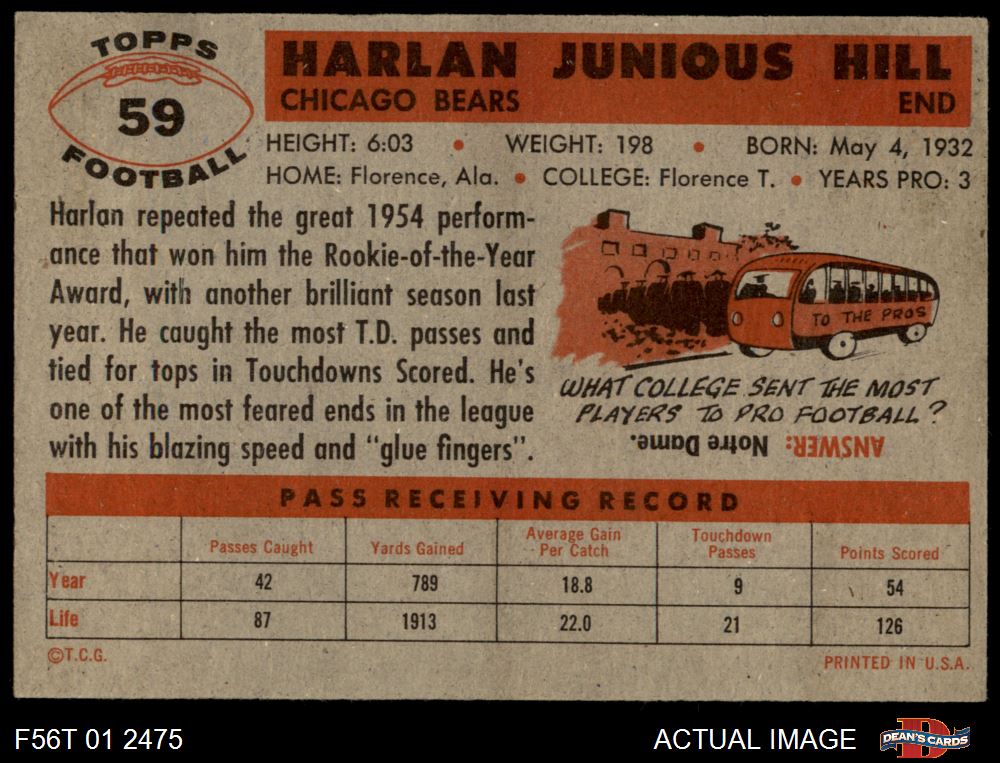 TOPPS
59
FOOTBALL
HARLAN JUNIOUS HILL
CHICAGO BEARS END
HEIGHT: 6:03 • WEIGHT: 198 • BORN: May 4, 1932
HOME: Florence, Ala. • COLLEGE: Florence T. • YEARS PRO: 3
Harlan repeated the great 1954 perform-
ance that won him the Rookie-of-the-Year
Award, with another brilliant season last
year. He caught the most T.D. passes and
tied for tops in Touchdowns Scored. He's
one of the most feared ends in the league
with his blazing speed and "glue fingers".
TO THE PROS
WHAT COLLEGE SENT THE MOST
PLAYERS TO PRO FOOTBALL?
ANSWER: Notre Dame.
PASS RECEIVING RECORD
Passes Caught Yards Gained Average Gain Per Catch Touchdown Passes Points Scored
Year 42 789 18.8 9 54
Life 87 1913 22.0 21 126
©T.C.G. PRINTED IN U.S.A.
F56T 01 2475 ACTUAL IMAGE DEAN'S CARDS